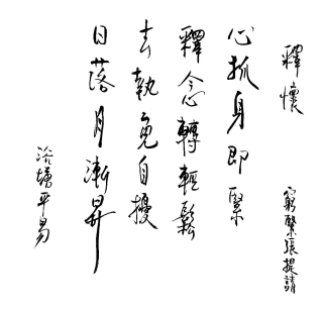 釋懷
窮緊張提請
心抓身即緊
釋念轉輕鬆
去執免自擾
日落月漸昇
平易